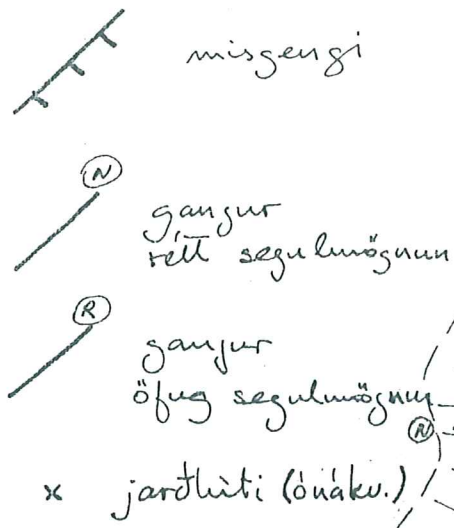 misgengi
N
gangur
rétt segulmögnun
R
gangur
öfug segulmögnun
N
x jarðhiti (ónákv.)